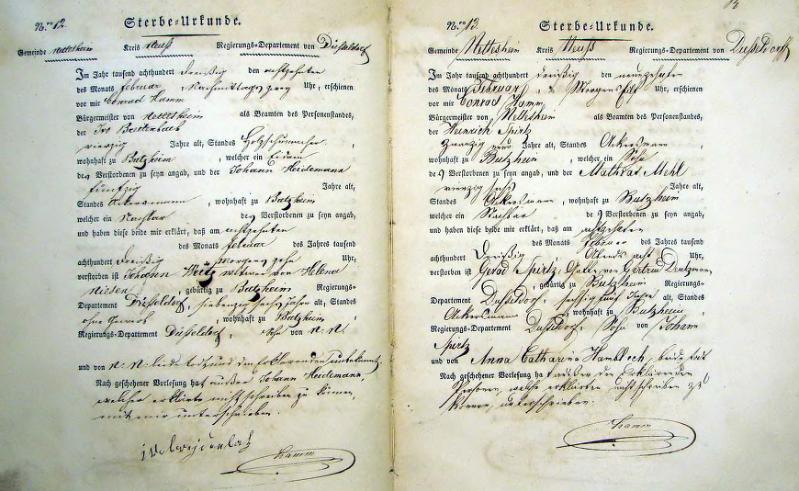 Nro 12.
Sterbe-Urkunde.
Gemeinde Nettesheim Kreis Neuß Regierungs-Departement von Düsseldorf
Im Jahr tausend achthundert dreißig den achtzehnten
des Monats februar, Nachmittags zwey Uhr, erschienen
vor mir Conrad Hamm
Bürgermeister von Nettesheim als Beamten des Personenstandes,
der
vierzig Jahre alt, Standes Holzschuhmacher
wohnhaft zu Butzheim, welcher ein Eidam
des Verstorbenen zu seyn angab, und der Johann Heidemann
fünfzig Jahre alt,
Standes Ackersmann, wohnhaft zu Butzheim
welcher ein Nachbar des Verstorbenen zu seyn angab,
und haben diese beide mir erklärt, daß am achtzehnten
des Monats februar des Jahres tausend
achthundert dreißig morgens zehn Uhr
verstorben ist Johann Witwer von Helena
gebürtig zu Butzheim Regierungs-
Departement Düsseldorf, siebenzig Jahre alt, Standes
ohne Gewerb, wohnhaft zu Butzheim
Regierungs-Departement Düsseldorf, Sohn von N: N
und von N: N: beide todt und den Erklärenden unbekannt
Nach geschehener Vorlesung hat außer Johann Heidemann,
welcher erklärte nicht schreiben zu können,
mit mir unterschrieben.
Hamm
Nro 13.
Sterbe-Urkunde.
Gemeinde Nettesheim Kreis Neuß Regierungs-Departement von Düsseldorf
Im Jahr tausend achthundert dreißig den neunzehnten
des Monats Februar, Morgens elf Uhr, erschienen
vor mir Conrad Hamm
Bürgermeister von Nettesheim als Beamten des Personenstandes,
der Heinrich Spirtz
zwanzig neun Jahre alt, Standes Ackersmann
wohnhaft zu Butzheim, welcher ein Sohn
des Verstorbenen zu seyn angab, und der Mathias Mehl
vierzig sechs Jahre alt,
Standes Ackersmann, wohnhaft zu Butzheim
welcher ein Nachbar des Verstorbenen zu seyn angab,
und haben diese beide mir erklärt, daß am achtzehnten
des Monats Februar des Jahres tausend
achthundert Dreißig Abends acht Uhr
verstorben ist Spirtz, von Gertrud
gebürtig zu Butzheim Regierungs-
Departement Düsseldorf, sechszig fünf Jahre alt, Standes
Ackersmann, wohnhaft zu Butzheim
Regierungs-Departement Düsseldorf, Sohn von Johann
Spirtz
und von Anna Catharina Hambloch, beide
Nach geschehener Vorlesung haben die Erklärenden
welche erklärten nicht schreiben zu
können, unterschrieben.
Hamm